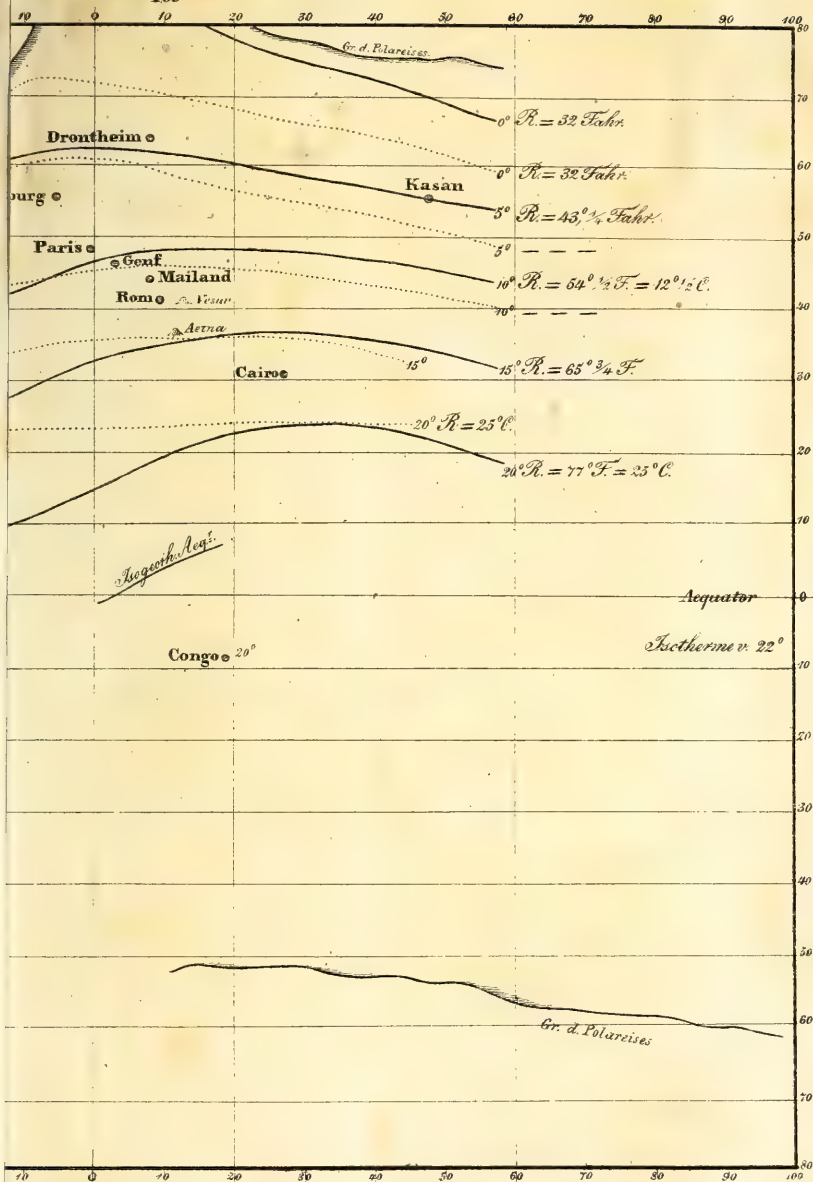 10 0 10 20 30 40 50 60 70 80 90 100
80
Gr. d. Polareises.
70
0° R. = 32 Fahr.
Drontheim
60
0° R. = 32 Fahr.
Kasan
burg
5° R. = 43,° 1/4 Fahr.
50
Paris
5° — — —
Genf
Mailand
10° R. = 54° 1/2 F. = 12° 1/2 C.
Rom Vesuv
40
10° — — —
Aetna
15° 15° R. = 65° 3/4 F.
Cairo
30
20° R = 25° C.
20
20° R. = 77° F. = 25° C.
10
Isogeoth. Aeqr.
Aequator 0
Congo 20° Isotherme v. 22°
10
20
30
40
50
60
Gr. d. Polareises
70
80
10 0 10 20 30 40 50 60 70 80 90 100